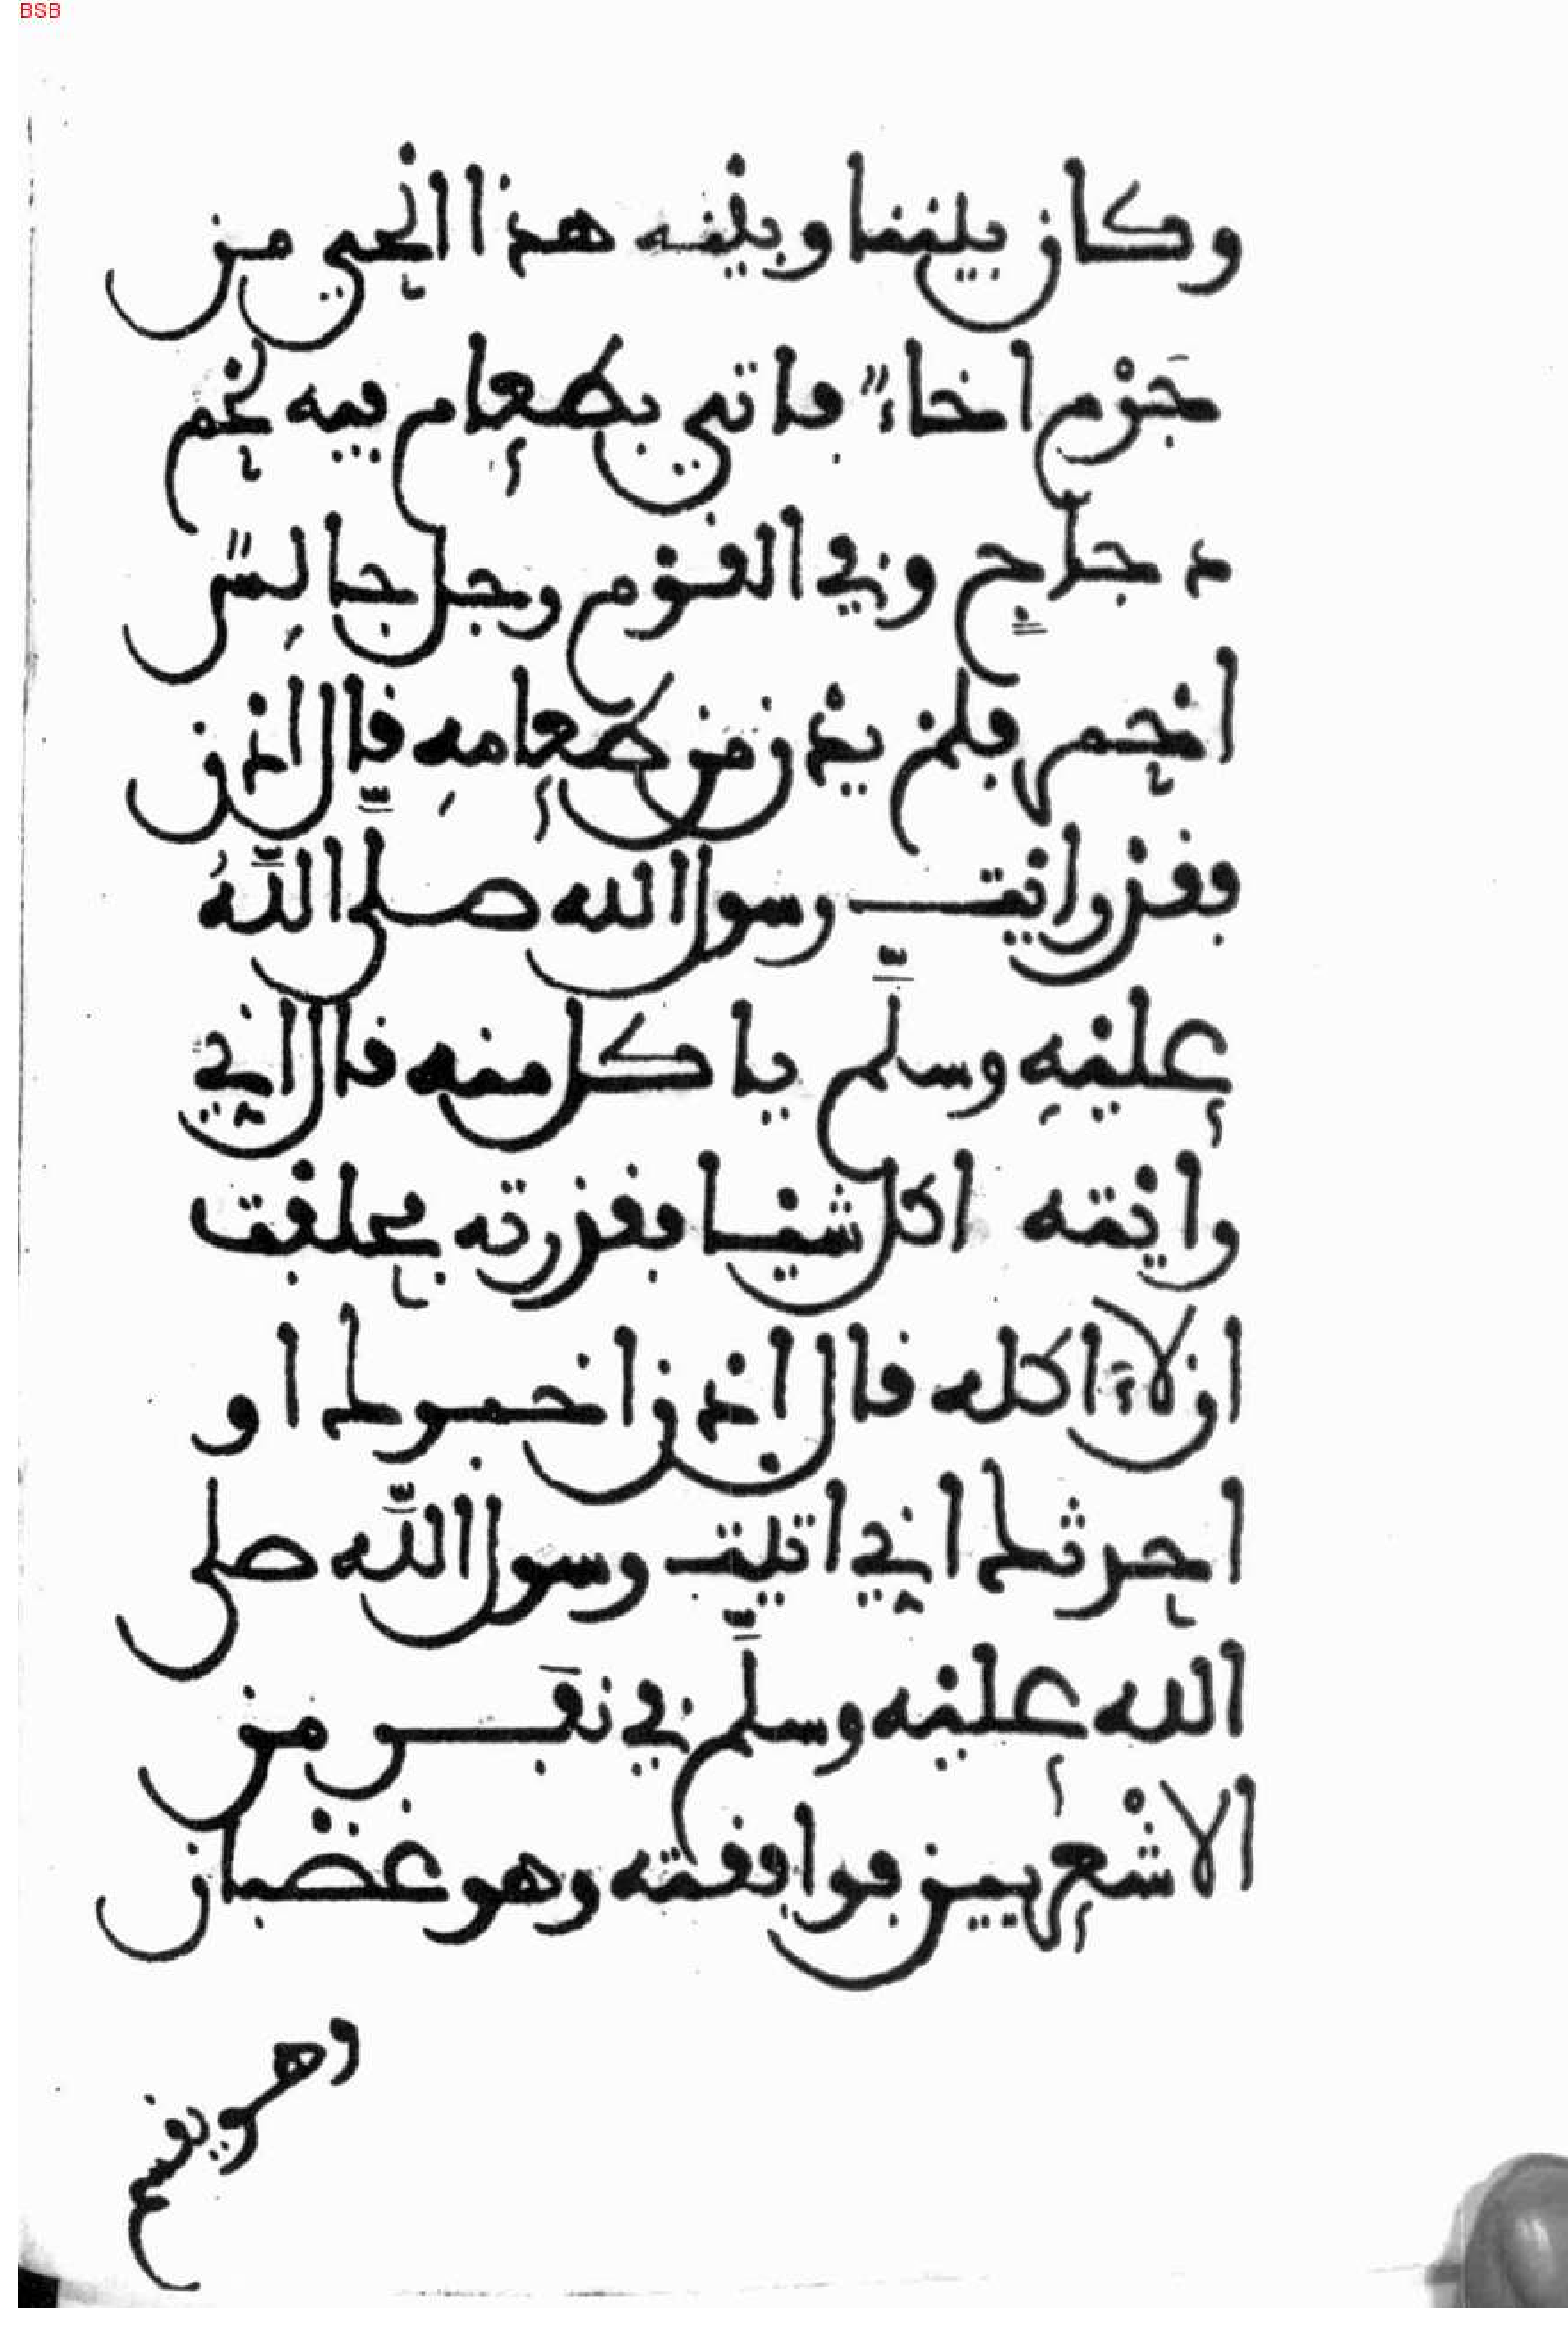 BSB
وكان بيننا وبينه هذا الحي من
جَرْم اخاءٌ فاتي بطعام فيه لحم
دجاجٍ وفي القوم رجل جالسٌ
احمر فلم يدن من طعامِه فقال ادن
فقد رايت رسول الله صلَّى اللَّهُ
عليْهِ وسلَّم ياكل منه قال اني
رايته اكل شيْـا فقذرته فحلفت
ان لا ءاكله قال ادن اخبرك او
احدثك اني اتيت رسول اللَّه صلى
الله عليْه وسلَّم في نفَر من
الاشْعريين فوافقته وهو غضْبان
وهو يقسم